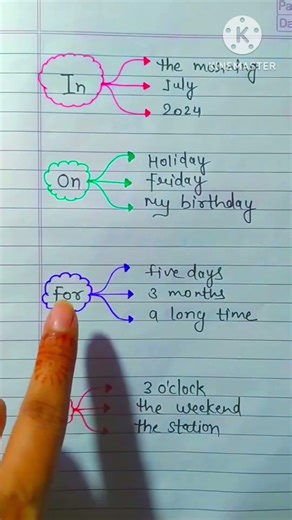 Pa
Da
K
KINEMASTER
In
the morning
July
2024
On
Holiday
friday
My birthday
For
five days
3 months
a long time
3 o'clock
the weekend
the station